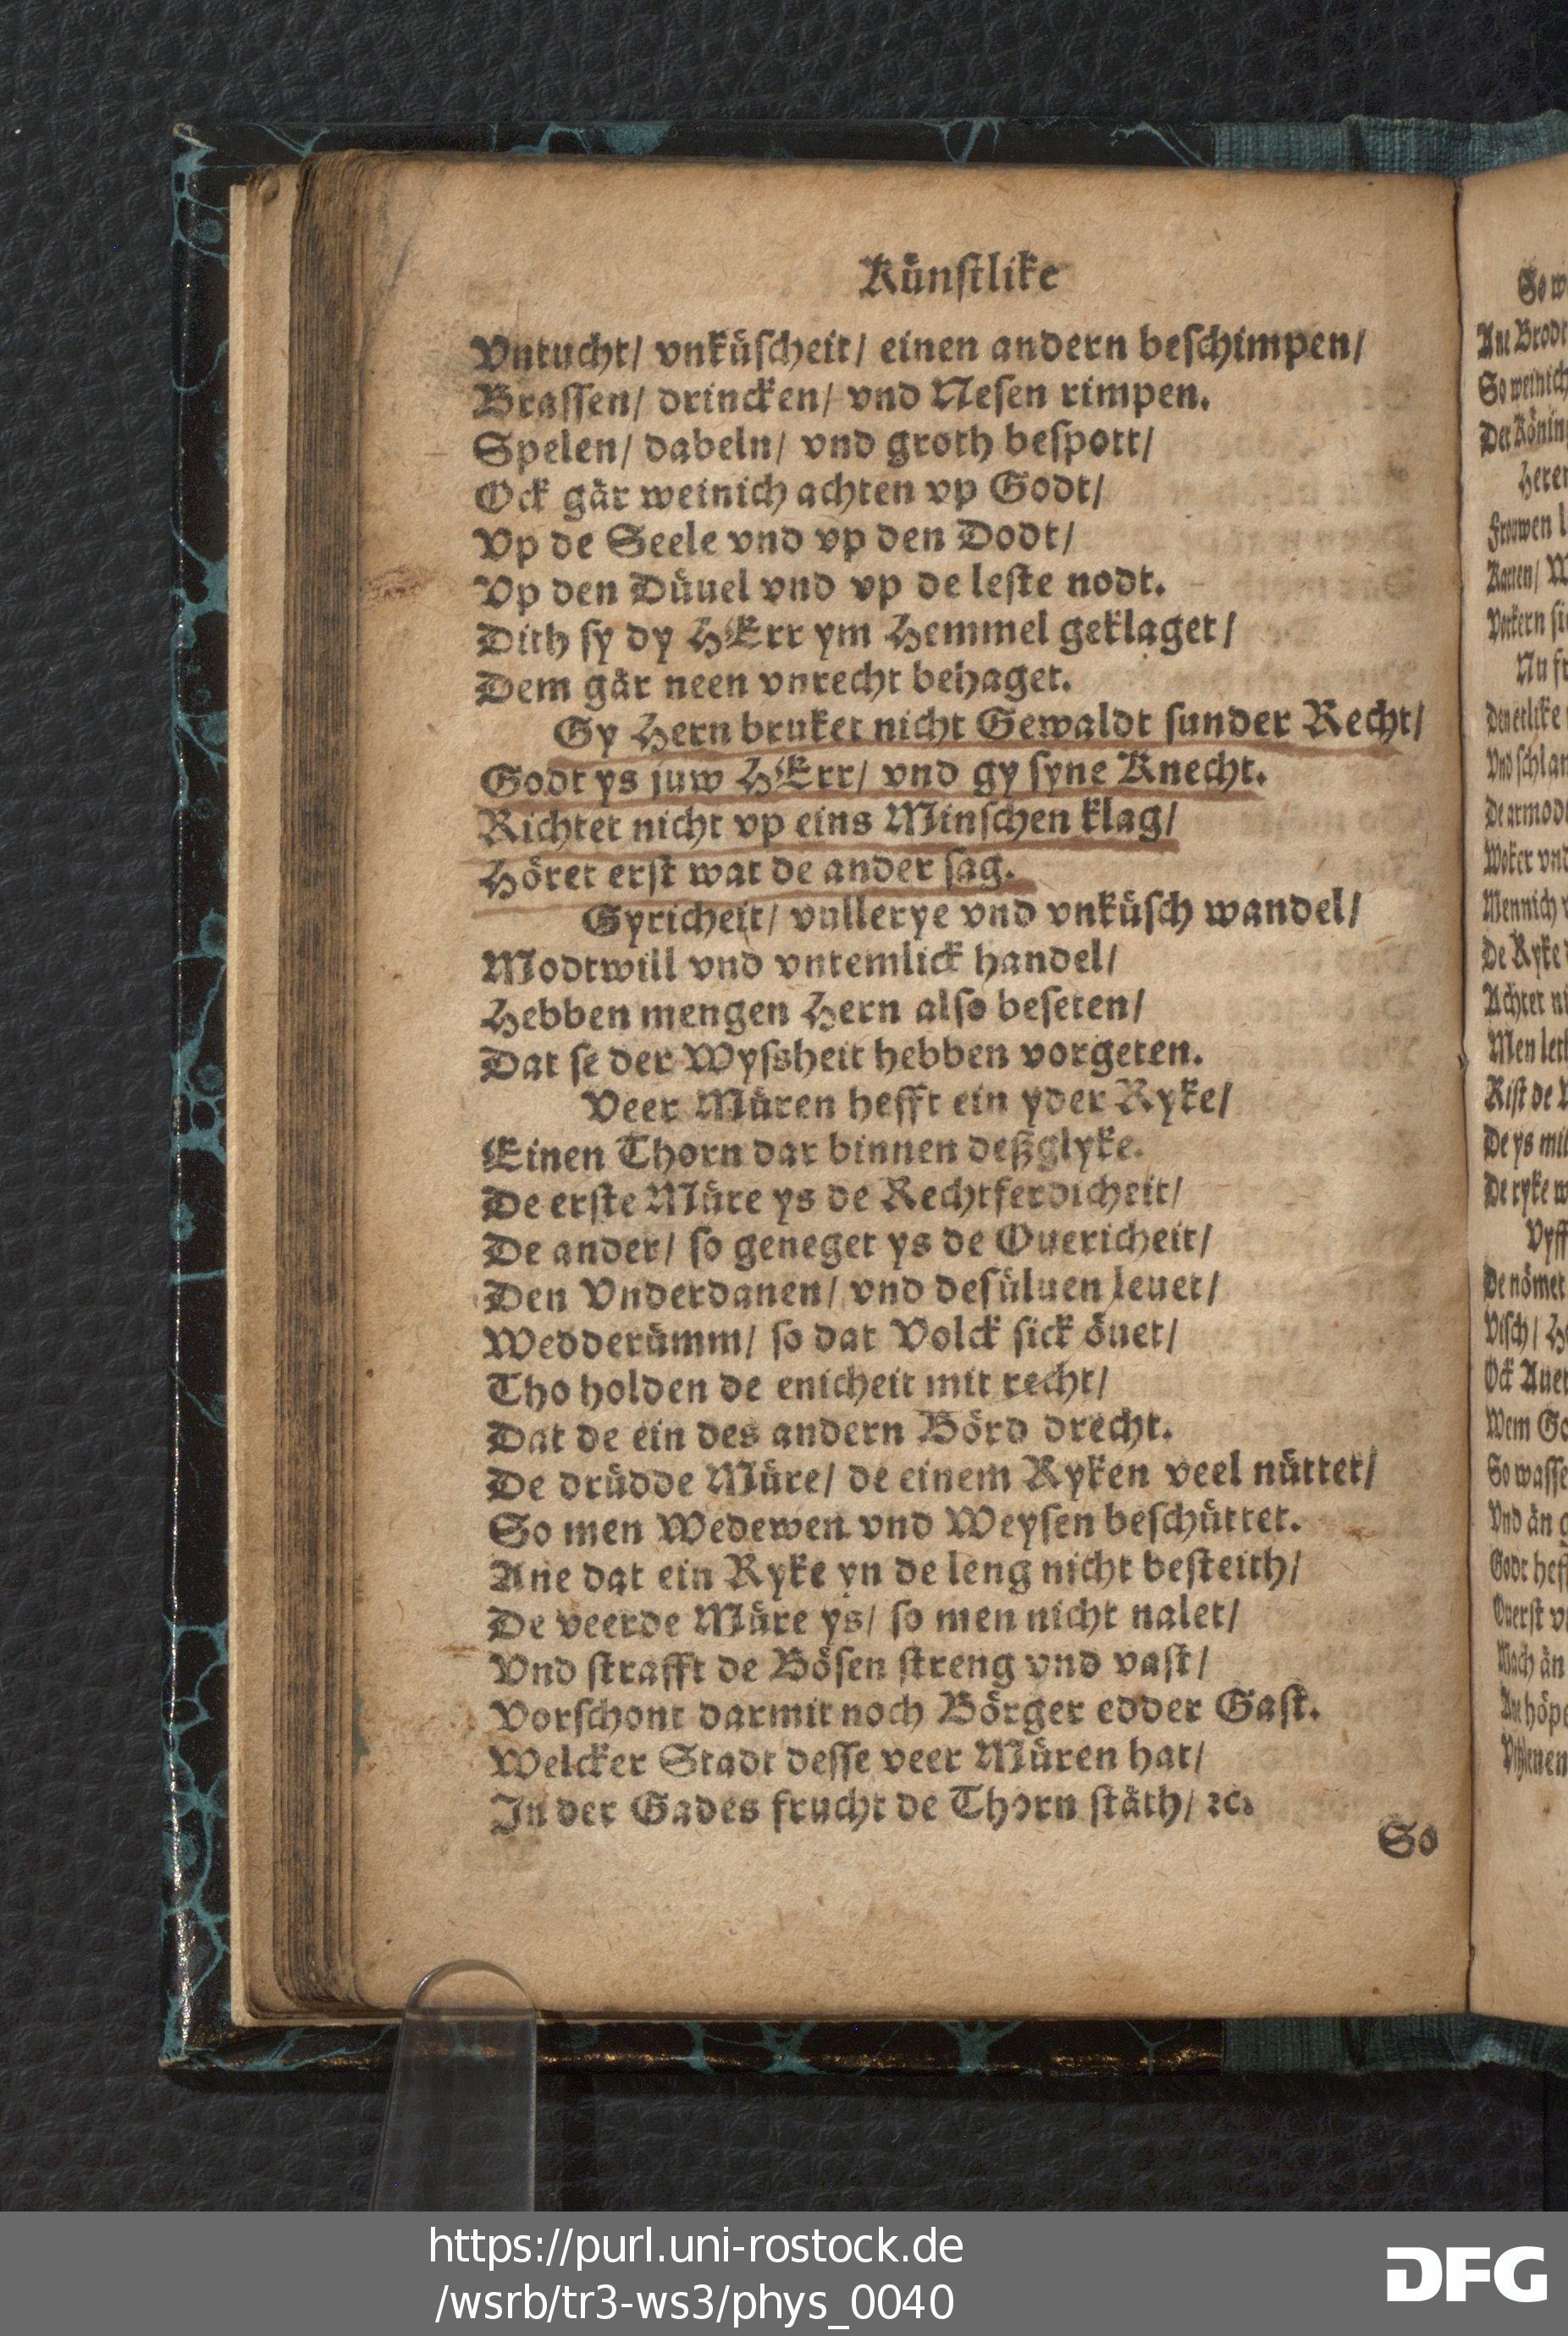 Künstlike
Vntucht/ vnküscheit/ einen andern beschimpen/
Brassen/ drincken/ vnd Nesen rimpen.
Spelen/ dabeln/ vnd groth bespott/
Ock gär weinich achten vp Godt/
Vp de Seele vnd vp den Dodt/
Vp den Düuel vnd vp de leste nodt.
Dith sy dy HErr ym Hemmel geklaget/
Dem gär neen vnrecht behaget.
Gy Hern bruket nicht Gewaldt sunder Recht/
Godt ys juw HErr/ vnd gy syne Knecht.
Richtet nicht vp eins Minschen klag/
Höret erst wat de ander sag.
Gyricheit/ vullerye vnd vnküsch wandel/
Modtwill vnd vntemlick handel/
Hebben mengen Hern also beseten/
Dat se der Wyssheit hebben vorgeten.
Veer Müren hefft ein yder Ryke/
Einen Thorn dar binnen deßglyke.
De erste Müre ys de Rechtferdicheit/
De ander/ so geneget ys de Ouericheit/
Den Vnderdanen/ vnd desüluen leuet/
Wedderümm/ so dat Volck sick öuet/
Tho holden de enicheit mit recht/
Dat de ein des andern Börd drecht.
De drüdde Müre/ de einem Ryken veel nüttet/
So men Wedewen vnd Weysen beschüttet.
Ane dat ein Ryke yn de leng nicht besteith/
De veerde Müre ys/ so men nicht nalet/
Vnd strafft de Bösen streng vnd vast/
Vorschont darmit noch Börger edder Gast.
Welcker Stadt desse veer Müren hat/
In der Gades frucht de Thorn stäth/ ꝛc.
So
So w
Ane Brodt
So weinich
Der Köning
Heren
Frouwen l
Katten/ M
Nu fr
Den etlike
Vnd schlan
De armodt
Woker vnd
Mennich v
De Ryke
Achtet ni
Men let
De ys mit
De ryke w
Vyff
De nömet
Visch/ H
Ock Auer
Wem Go
So wasse
Vnd än g
Godt heff
Ouerst v
https://purl.uni-rostock.de
/wsrb/tr3-ws3/phys_0040
DFG